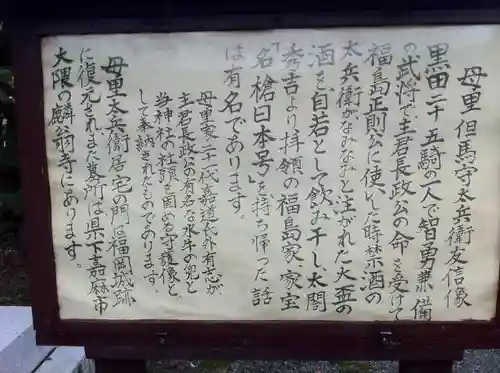 母里但馬守太兵衛友信像
黒田二十五騎の一人で智勇兼備
の武将で主君長政公の命を受けて
福島正則公に使いした時禁酒の
太兵衛がなみなみと注がれた大盃の
酒を自若として飲み干し太閤
秀吉より拝領の福島家家宝
「名槍日本号」を持ち帰った話
は有名であります。
母里家二十一代嘉道氏外有志が
主君長政公の有名な水牛の兜と
当神社の社頭を固める守護像と
して奉納されたものであります。
母里太兵衛居宅の門は福岡城跡
に復元されまた墓所は県下嘉麻市
大隈の麟翁寺にあります。